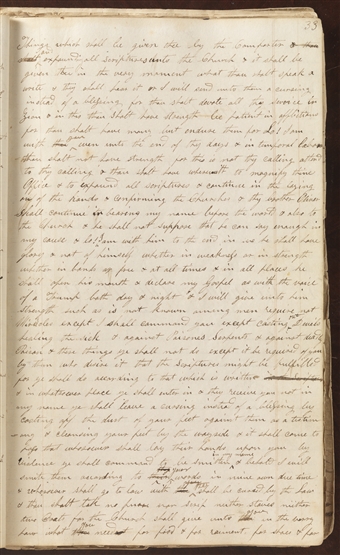 33
things which shall be given thee by the Comforter & thou
shalt expound all Scriptures unto the Church & it shall be
given thee in the very moment what thou shalt speak &
write & they shall hear it or I will send unto them a cursing
instead of a blessing for thou shalt devote all thy service in
Zion & in this thou shalt have strength be patient in afflictions
for thou shalt have many but endure them for Lo! I am
with thee even unto the end of thy days & in temporal labors
thou shalt not have strength for this is not thy calling attend
to thy calling & thou shalt have wherewith to magnify thine
Office & to expound all scriptures & continue in the laying
on of the hands & confirming the Churches & thy brother Oliver
shall continue in bearing my name before the world & also to
the Church & he shall not suppose that he can say enough in
my cause & lo! I am with him to the end in me he shall have
glory & not of himself whether in weakness or in strength
whether in bonds or free & at all times & in all places he
shall open his mouth & declare my Gospel as with the voice
of a Trump both day & night & I will give unto him
strength such as is not known among men require not
Miracles except I shall command you except casting out Devils
healing the sick & against Poisonous Serpents & against deadly
Poison & these things ye shall not do except it be required of you
by them who desire it that the Scriptures might be fulfilled
for ye shall do according to that which is written
& in whatsoever place ye shall enter in & they receive you not in
my name ye shall leave a cursing instead of a blessing by
casting off the dust of your feet against them as a testim
-ony & cleansing your feet by the wayside & it shall come to
pass that whosoever shall lay their hands upon you by
violence ye shall command to be smitten in my name & behold I will
smite them according to your words in mine own due time
& whosoever shall go to law with thee shall be cursed by the law
& thou shalt take no purse nor scrip neither staves neither
two coats for the Church shall give unto thee in the very
hour what thou needest for food & for raiment for shoes & for